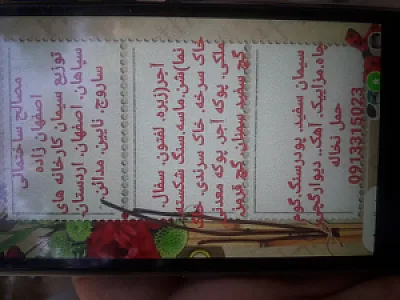 مصالح ساختمانی
اصفهان زاده
توزیع سیمان کارخانه های
سپاهان. اصفهان. اردستان.
ساروج. نایین. مدالن.
آجر(زبره. لفتون. سفال.
نما)شن.ماسه.سنگ شکسته
خاک سرخه. خاک سرندی. خاک
ملکی. پوکه آجر پوکه معدنی
گچ سفید سپهان. گچ
سیمان سفید. پودرسنگ.گوم
چاه.مزاییک. آهک. دیوارگچی
حمل نخاله
09133315023